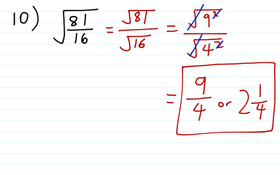 10) √(81/16) = √81/√16 = √9²/√4²
= 9/4 or 2 1/4